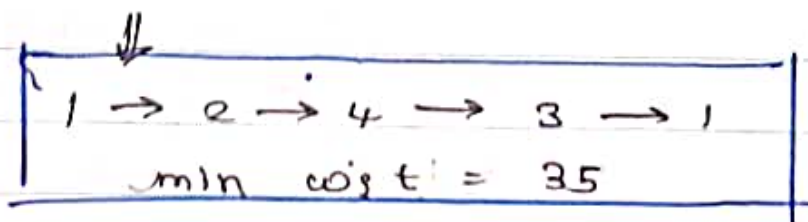 1 → 2 → 4 → 3 → 1
min cost = 35